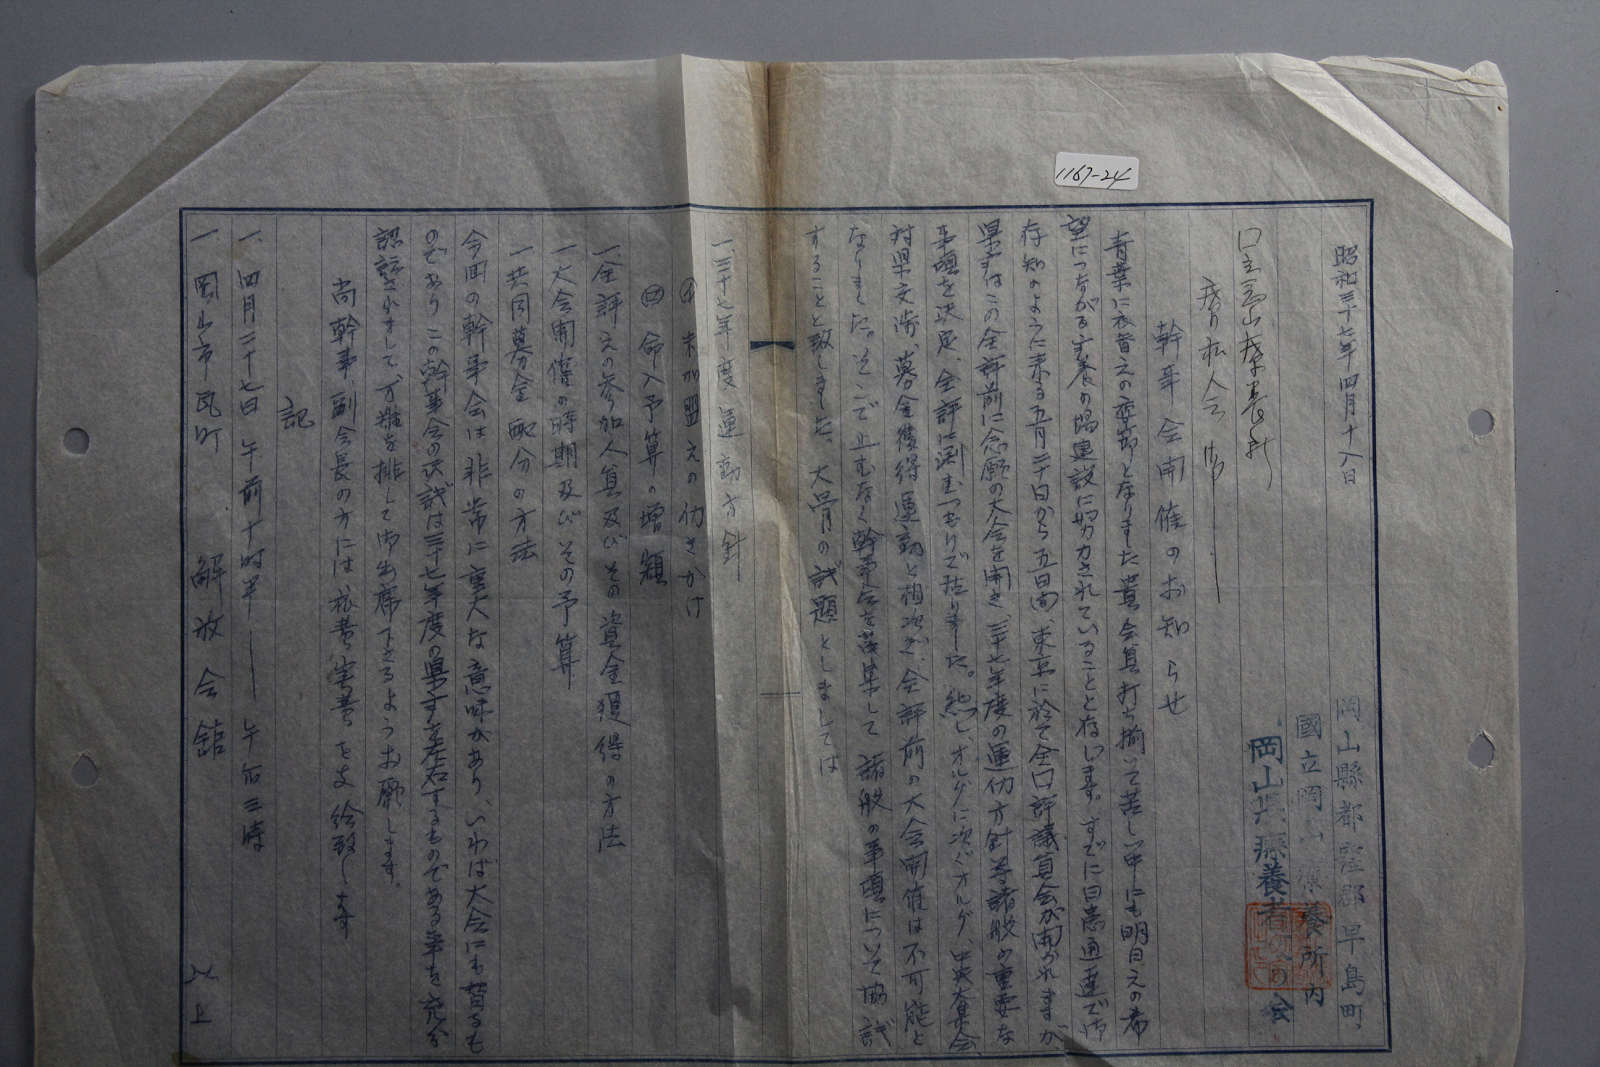 1167-24
昭和三十七年四月十八日
岡山縣都窪郡早島町
國立岡山療養所内
岡山県療養者の会
幹事会開催のお知らせ
青葉に衣替えの季節となりました貴会員打ち揃いて苦しい中にも明日えの希
望につながる療養の場建設に努力されていることと存じます。すでに日患通達で御
存知のように来る五月二十日から五日間、東京に於て全国評議員会が開かれますが
県はこの全評前に念願の大会を開き、三十七年度の運仂方針等諸般の重要な
事項を決定、全評に臨むつもりで居りました。然し、オルグに次ぐオルグ、中央大集会
対県交渉、募金獲得運動と相次ぎ、全評前の大会開催は不可能と
なりました。そこで止むなく幹事会を召集して諸般の事項について協議
することと致しました。大骨の議題としましては
一、三十七年度運動方針
㋑ 未加盟えの仂きかけ
㋺ 命入予算の増額
一、全評えの参加人員及びその資金獲得の方法
一、大会開催の時期及びその予算
一、共同募金配分の方法
今回の幹事会は非常に重大な意味があり、いわば大会にも替るも
のであり この幹事会の決議は三十七年度の県を左右するものである事を充分
認識されまして、万難を排して御出席下さるようお願します。
尚幹事、副会長の方には旅費実費を支給致します
記
一、四月二十七日 午前十時半 ― 午后三時
一、岡山市瓦町 解放会館
以上